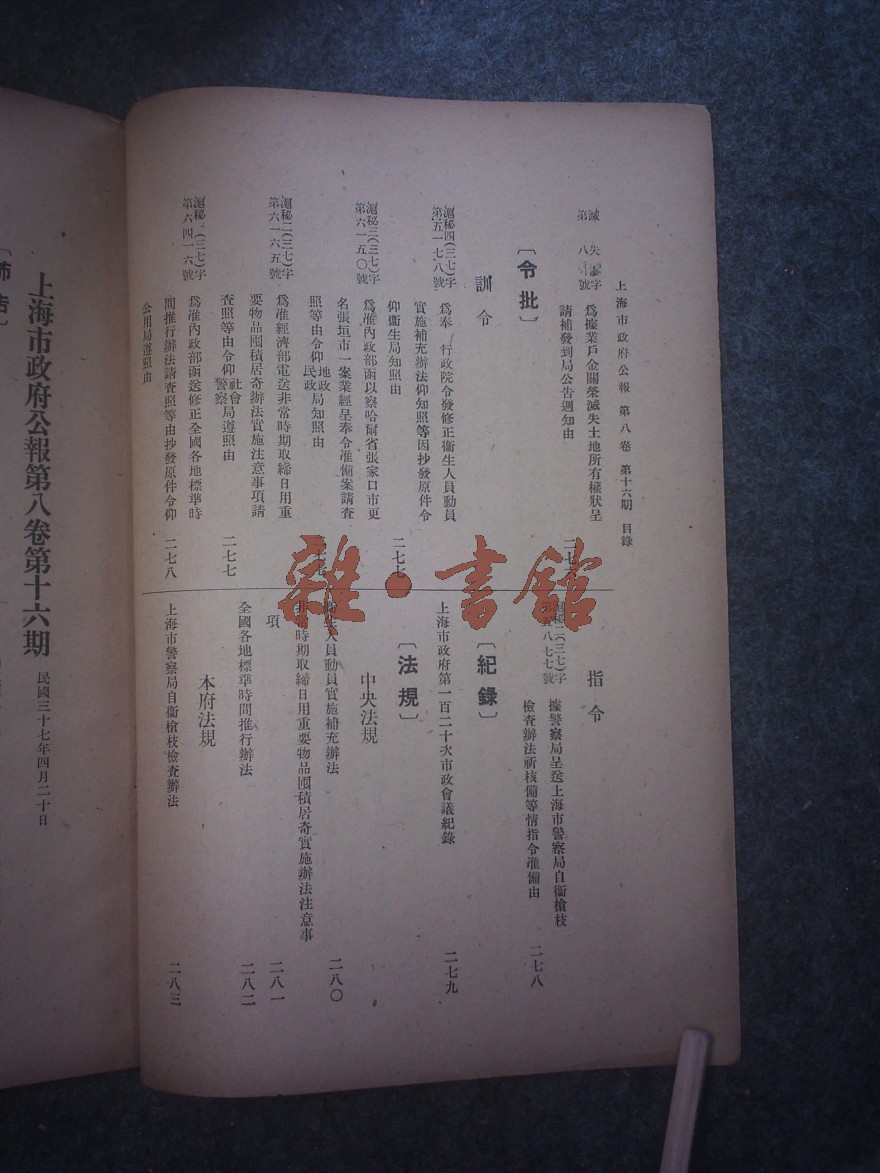 上海市政府公報 第八卷 第十六期 目錄
滅失 字
第八 號
為據業戶金關榮滅失土地所有權狀呈
請補發到局公告週知由
〔令批〕
訓令
滬秘四(三七)字
第五一七八號
為奉 行政院令發修正衞生人員動員
實施補充辦法仰知照等因抄發原件令
仰衞生局知照由
二七七
滬秘三(三七)字
第六一五〇號
為准內政部函以察哈爾省張家口市更
名張垣市一案業經呈奉令准備案請查
照等由令仰地政民政局知照由
滬秘二(三七)字
第六一六五號
為准經濟部電送非常時期取締日用重
要物品囤積居奇辦法實施注意事項請
查照等由令仰社會警察局遵照由
二七七
滬秘一(三七)字
第六四一六號
為准內政部函送修正全國各地標準時
間推行辦法請查照等由抄發原件令仰
公用局遵照由
二七八
指令
滬秘二(三七)字
五八七七號
據警察局呈送上海市警察局自衞槍枝
檢查辦法祈核備等情指令准備由
二七八
〔紀錄〕
上海市政府第一百二十次市政會議紀錄
二七九
〔法規〕
中央法規
衞生人員動員實施補充辦法
二八〇
非常時期取締日用重要物品囤積居奇實施辦法注意事
項
二八一
全國各地標準時間推行辦法
二八二
本府法規
上海市警察局自衞槍枝檢查辦法
二八三
上海市政府公報第八卷第十六期
民國三十七年四月二十日
雜·書館